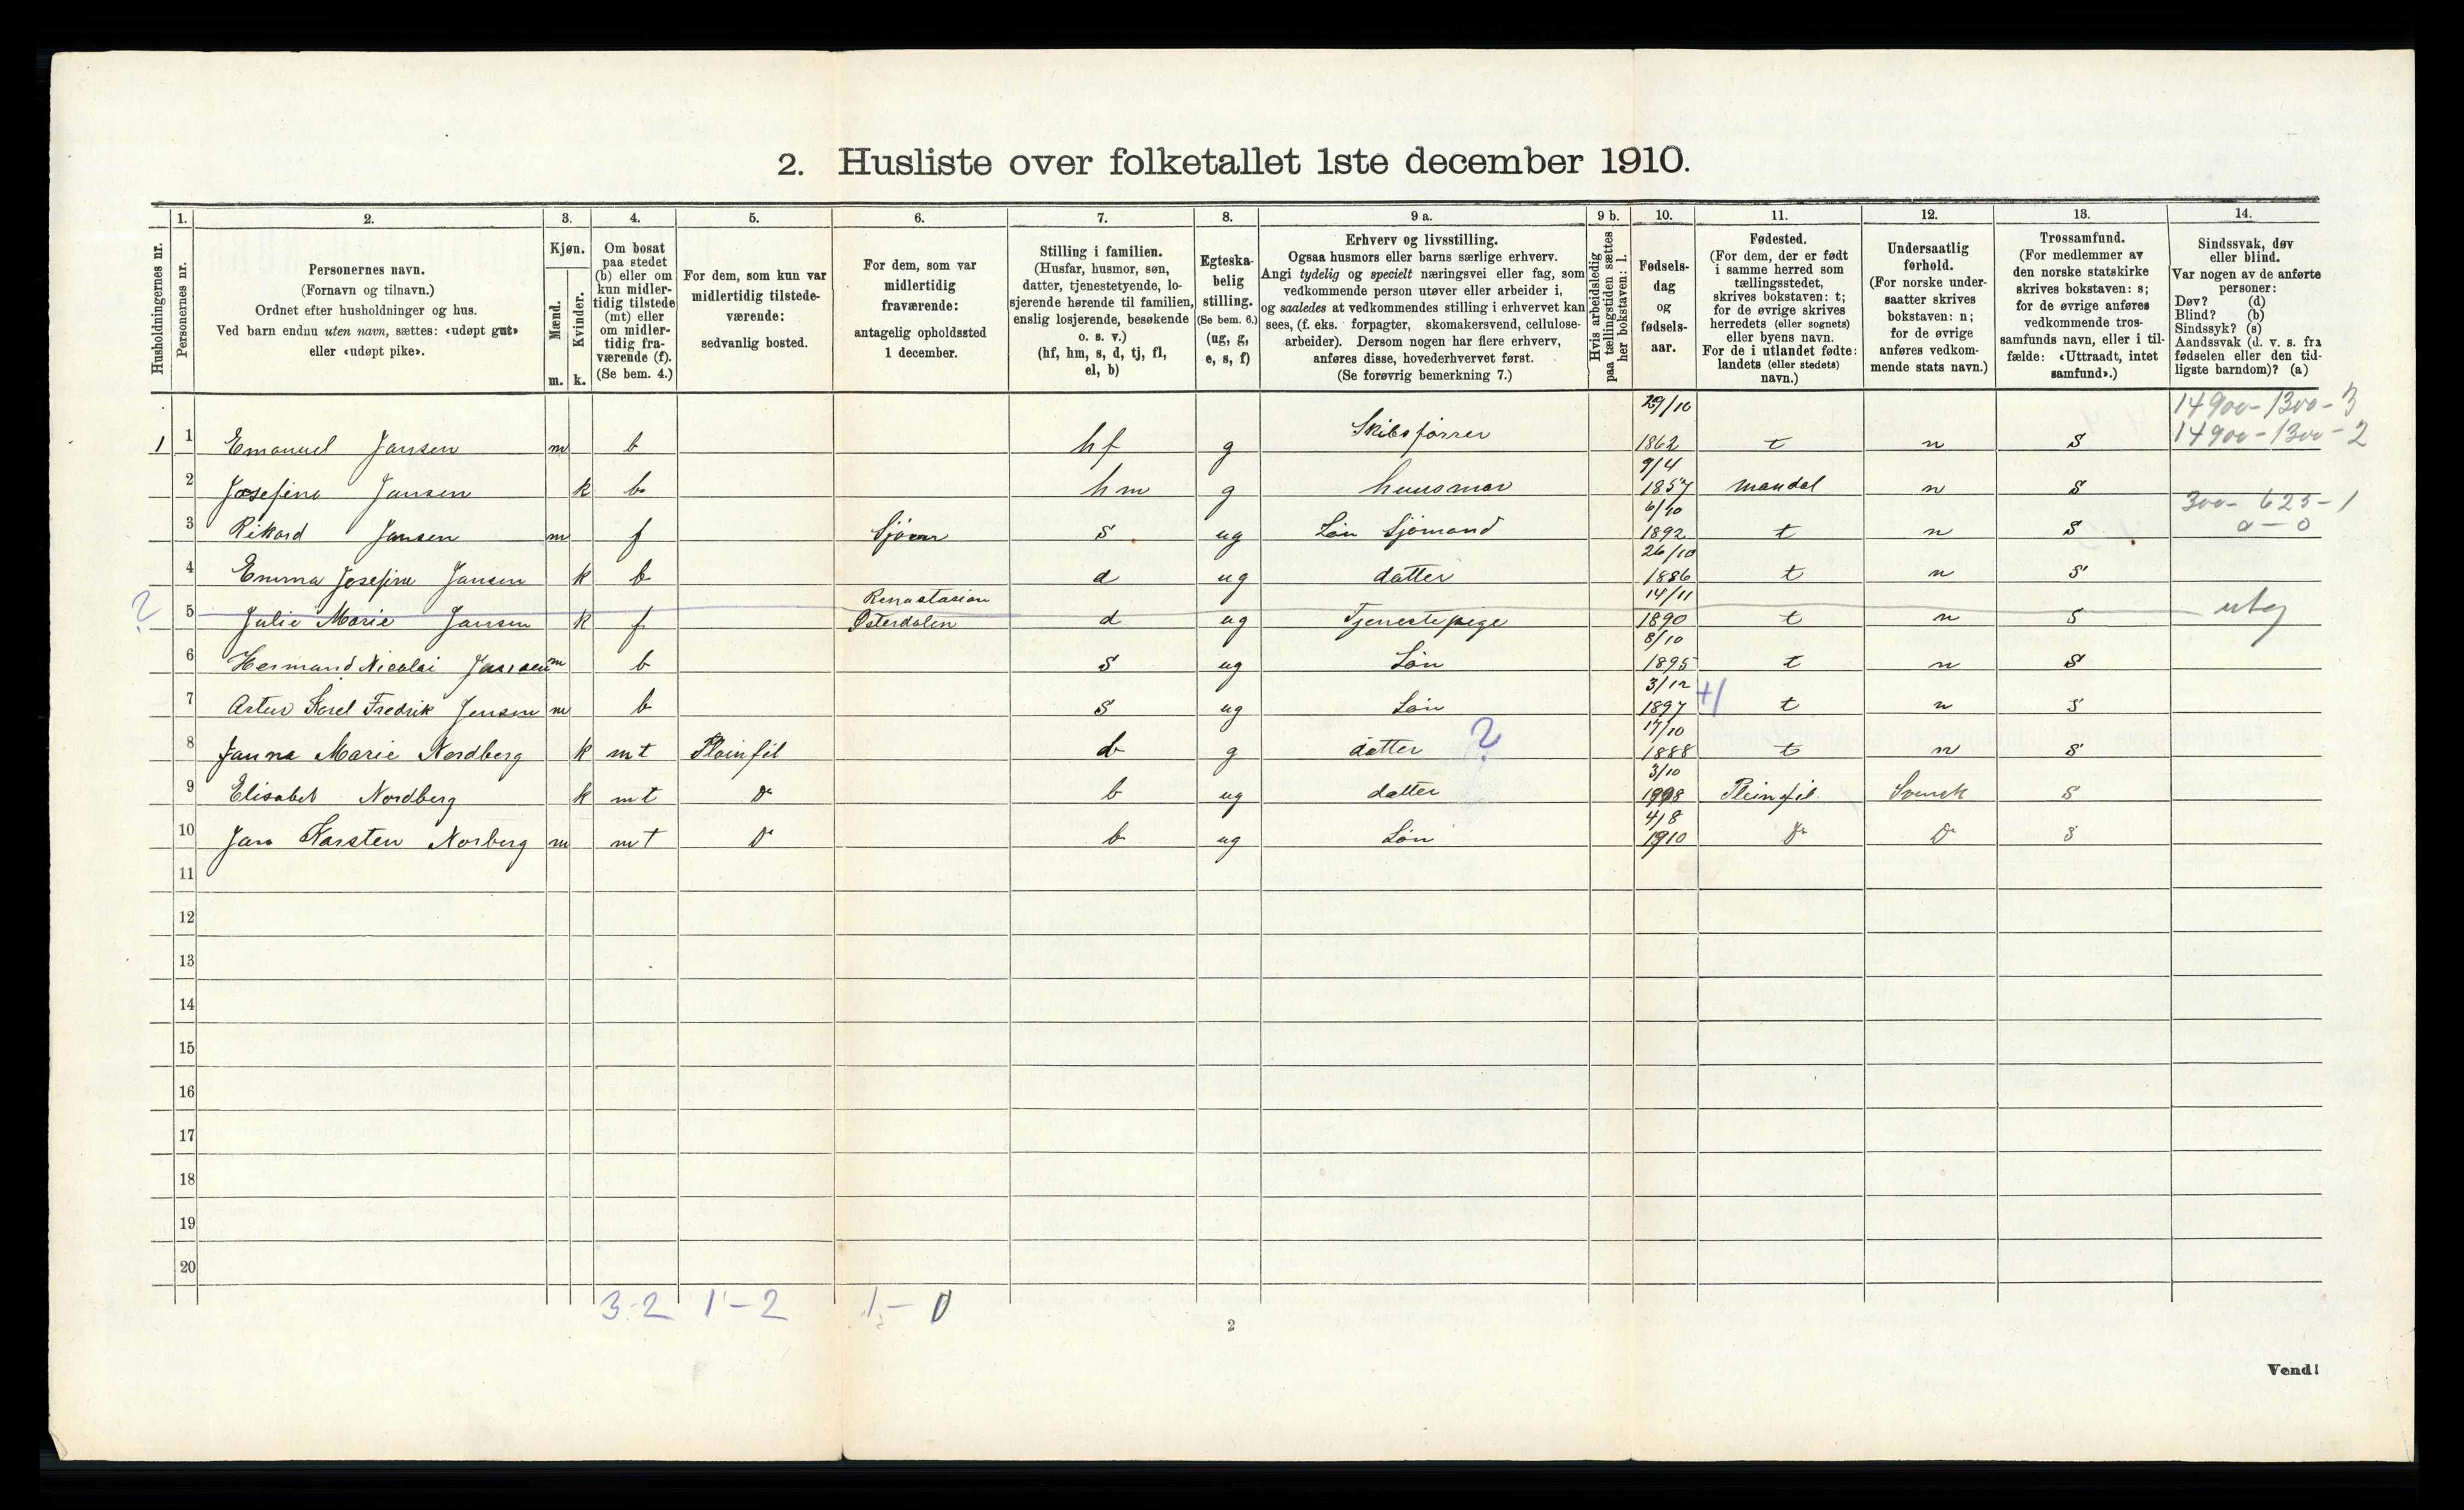 2. Husliste over folketallet 1ste december 1910.
Husholdningernes nr.
1.
Personernes nr.
2.
Personernes navn.
(Fornavn og tilnavn.)
Ordnet efter husholdninger og hus.
Ved barn endnu uten navn, sættes: «udøpt gut»
eller «udøpt pike».
3.
Kjøn.
Mænd.
m.
Kvinder.
k.
4.
Om bosat
paa stedet
(b) eller om
kun midler-
tidig tilstede
(mt) eller
om midler-
tidig fra-
værende (f).
(Se bem. 4.)
5.
For dem, som kun var
midlertidig tilstede-
værende:
sedvanlig bosted.
6.
For dem, som var
midlertidig
fraværende:
antagelig opholdssted
1 december.
7.
Stilling i familien.
(Husfar, husmor, søn,
datter, tjenestetyende, lo-
sjerende hørende til familien,
enslig losjerende, besøkende
o. s. v.)
(hf, hm, s, d, tj, fl,
el, b)
8.
Egteska-
belig
stilling.
(Se bem. 6.)
(ug, g,
e, s, f)
9 a.
Erhverv og livsstilling.
Ogsaa husmors eller barns særlige erhverv.
Angi tydelig og specielt næringsvei eller fag, som
vedkommende person utøver eller arbeider i,
og saaledes at vedkommendes stilling i erhvervet kan
sees, (f. eks. forpagter, skomakersvend, cellulose-
arbeider). Dersom nogen har flere erhverv,
anføres disse, hovederhvervet først.
(Se forøvrig bemerkning 7.)
9 b.
Hvis arbeidsledig
paa tællingstiden sættes
her bokstaven: l.
10.
Fødsels-
dag
og
fødsels-
aar.
11.
Fødested.
(For dem, der er født
i samme herred som
tællingsstedet,
skrives bokstaven: t;
for de øvrige skrives
herredets (eller sognets)
eller byens navn.
For de i utlandet fødte:
landets (eller stedets)
navn.)
12.
Undersaatlig
forhold.
(For norske under-
saatter skrives
bokstaven: n;
for de øvrige
anføres vedkom-
mende stats navn.)
13.
Trossamfund.
(For medlemmer av
den norske statskirke
skrives bokstaven: s;
for de øvrige anføres
vedkommende tros-
samfunds navn, eller i til-
fælde: «Uttraadt, intet
samfund».)
14.
Sindssvak, døv
eller blind.
Var nogen av de anførte
personer:
Døv? (d)
Blind? (b)
Sindssyk? (s)
Aandssvak (d. v. s. fra
fødselen eller den tid-
ligste barndom)? (a)
14900-1300-3
14900-1300-2
1 1 Emanuel Jansen m b hf g Skibsførrer 29/10 1862 t n s
2 Josefine Jansen k b hm g huusmor 9/4 1857 Mandal n s
300- 625-1
0-0
3 Rikard Jansen m f s ug Søn Sjømand 6/10 1892 t n s
4 Emma Josefine Jansen k b d ug datter 26/10 1886 t n s
? 5 Julie Marie Jansen k f Renastasion Østerdalen d ug Tjenestepige 14/11 1890 t n s utg
6 Hermand Nicolai Jansen m b s ug Søn 8/10 1895 t n s
7 Artur Karel Fredrik Jensen m b s ug Søn 3/12 1897 t n s
8 Janna Marie Nordberg k mt b g datter ? 17/10 1888 t n s
9 Elisabet Nordberg k mt Do b ug datter 3/10 Svensk s
10 Jan Karsten Norberg m mt Do b ug Søn 4/8 1910 Do Do s
11
12
13
14
15
16
17
18
19
20
3-2 1-2 1-0
2
Vend!